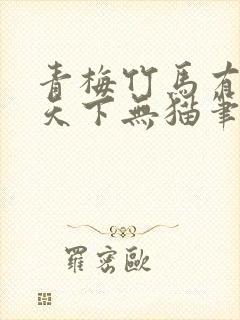 青梅竹馬有
天下無貓筆
羅密歐